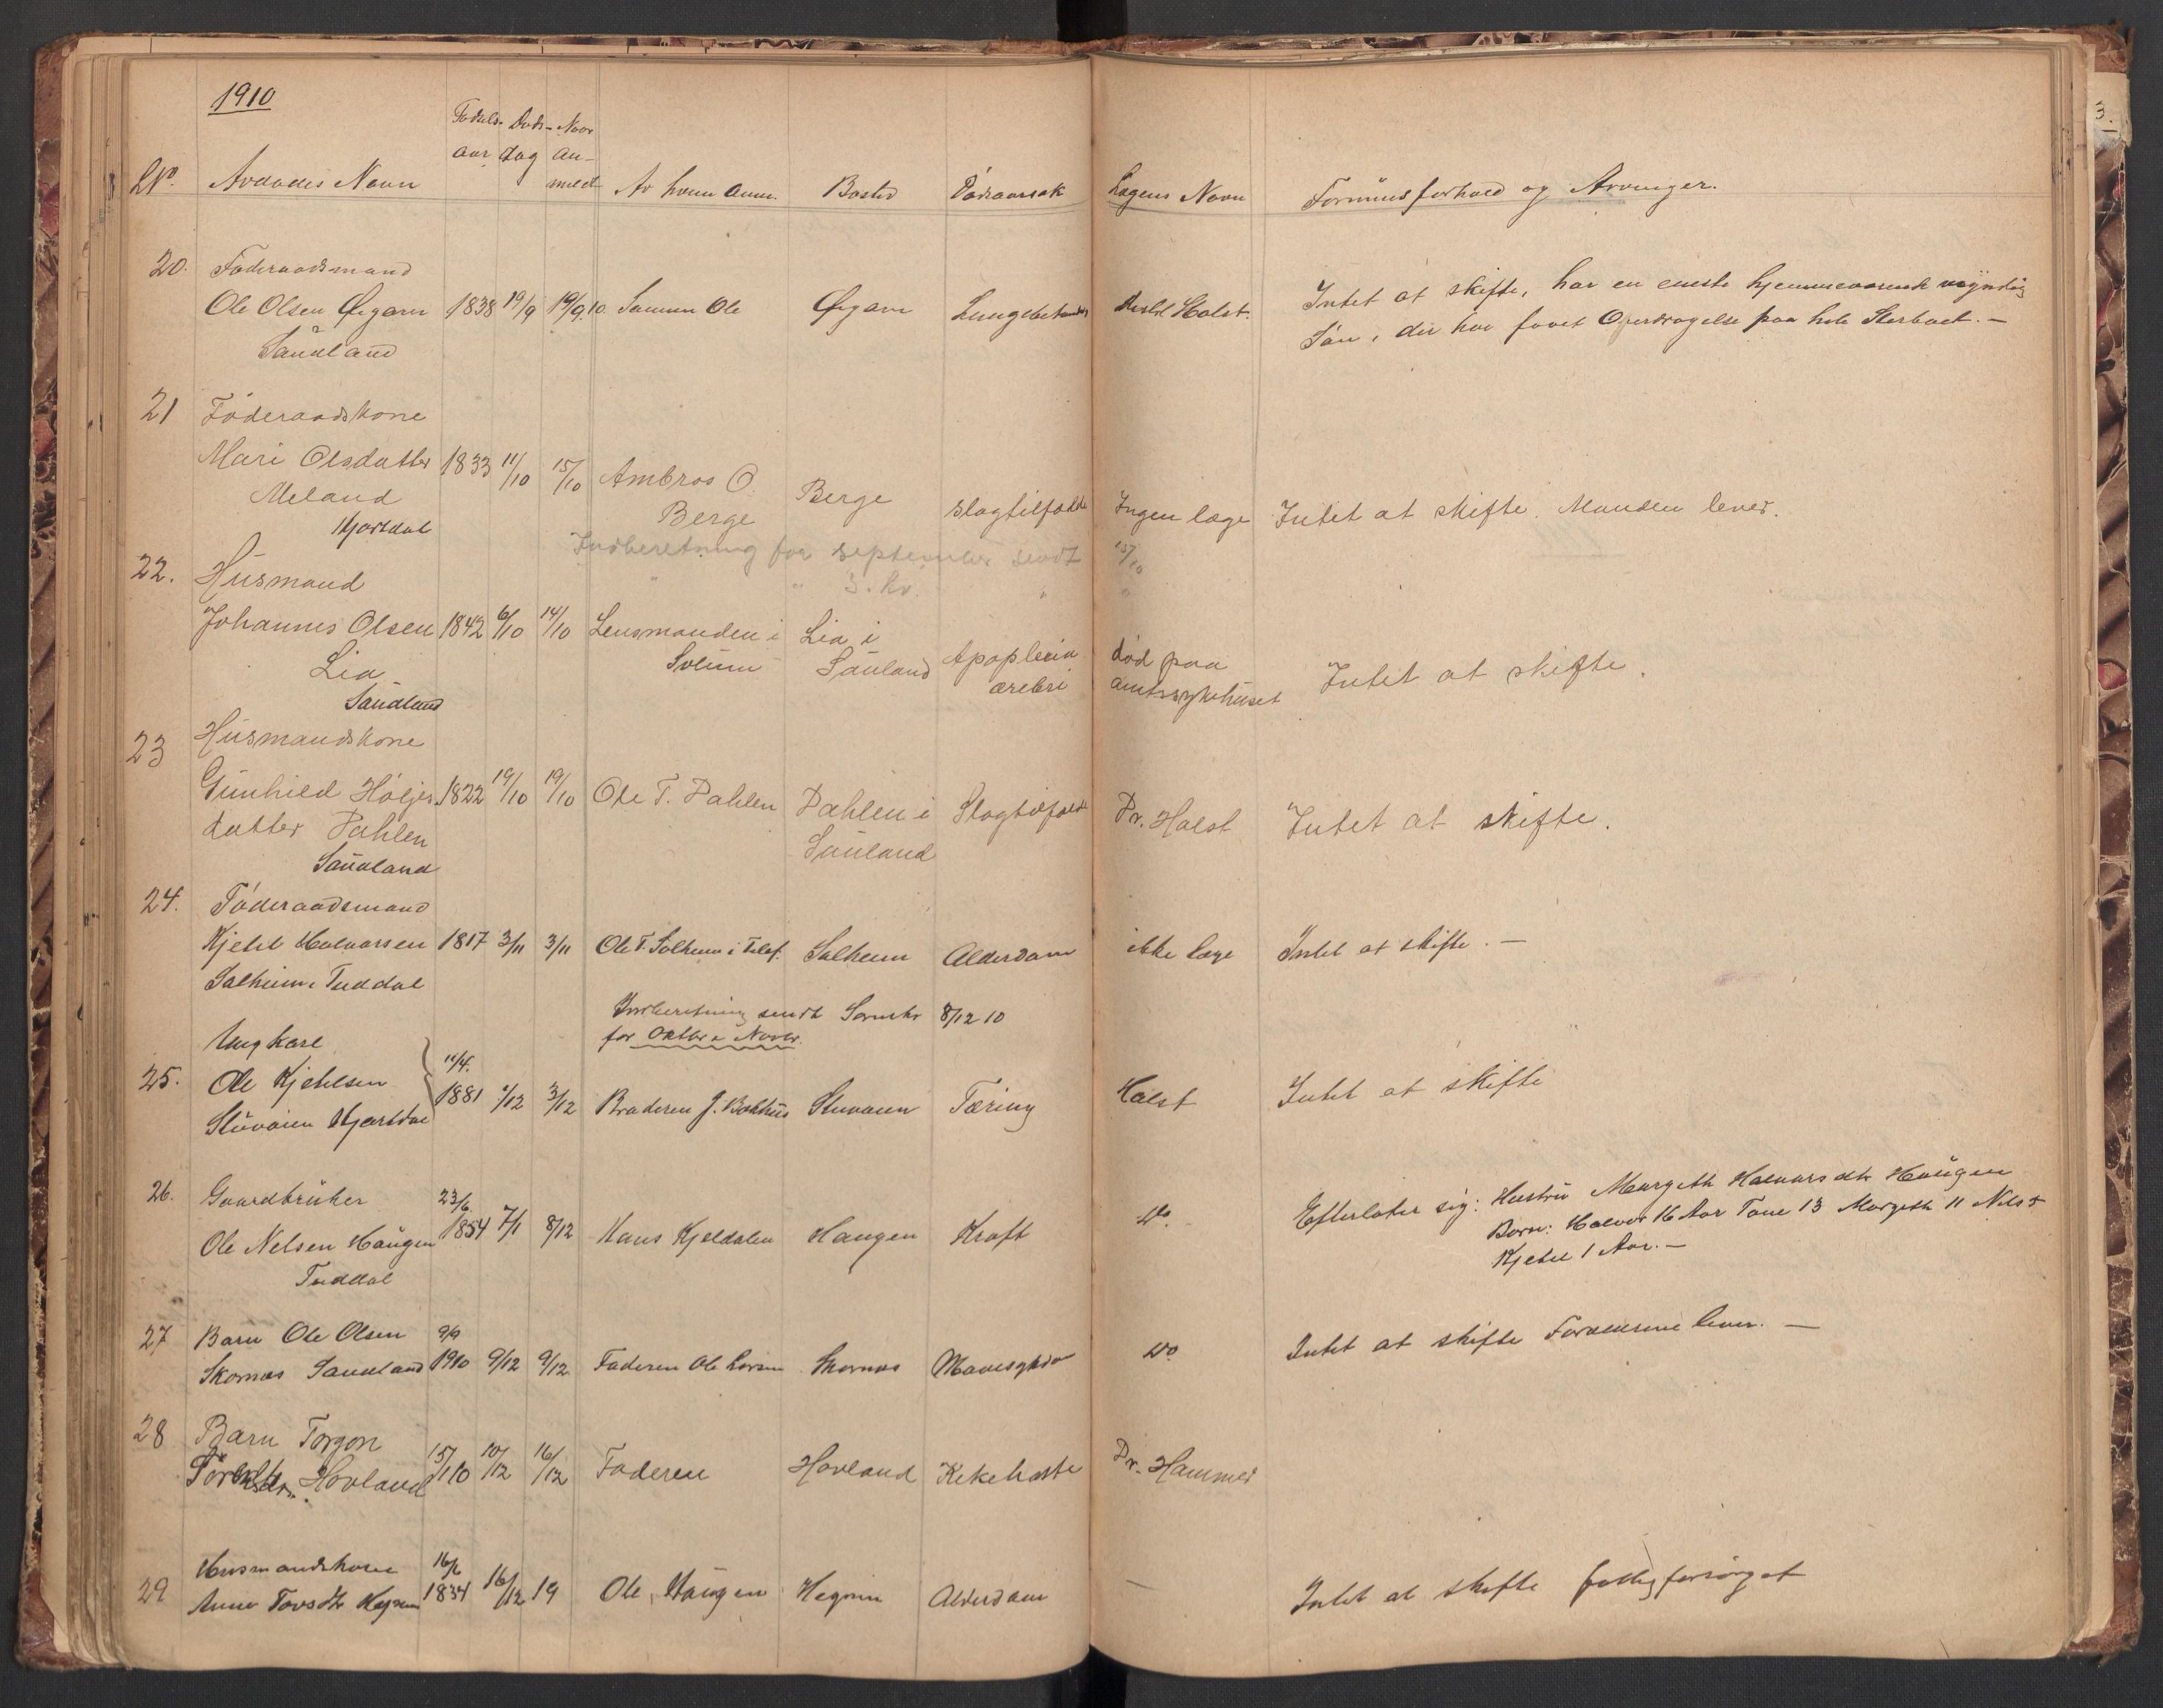 1910
Fødsels- Døds- Naar
aar dag an-
meldt
No. Avdødes Navn Av hvem anm. Bosted Dødsaarsak Lægens Navn Formuesforhold og Arvinger.
20. Føderaadsmand
Ole Olsen Øygarn 1838 19/9 19/9 10. Sønnen Ole Øygarn Holst. Intet at skifte, har en eneste hjemmeværende myndig
Sauland Søn, der har faaet Overdragelse paa hele Sterboet. -
21 Føderaadskone
Mari Olsdatter 1833 11/10 15/10 Ambros O. Berge Slagtilfælde Ingen læge Intet at skifte. Manden lever.
Meland Berge
Hjartdal
Indberetning for september sendt 15/10
" " 3. kv. " "
22. Husmand
Johannes Olsen 1842 6/10 14/10 Lensmanden i Lia i Apoplexia død paa Intet at skifte.
Lia Solum Sauland cerebri amtssykehuset
Saudland
23 Husmandskone
Gunhild Høljes 1822 19/10 19/10 Ole T. Dahlen Dahlen i Slagtilfælde Dr. Holst Intet at skifte.
datter Dahlen Sauland
Saudland
24. Føderaadsmand
Kjetil Halvorsen 1817 3/11 3/11 Ole T. Solheim i Telef. Solheim Alderdom ikke læge Intet at skifte. -
Solheim, Tuddal
Indberetning sendt Sorenskr 8/12 10
for Oktbr & Novbr.
Ungkarl
25. Ole Kjetilsen 11/4. 1881 1/12 3/12 Broderen J. Bakhus Stuvaien Tæring Holst Intet at skifte
Stuvaien Hjartdal
26. Gaardbruker 23/6 Efterlater sig: Hustru Margith Halvorsdtr Haugen
Ole Nelsen Haugen 1854 7/1 8/12 Hans Kjeldalen Haugen Kræft do. Børn: Halvor 16 Aar Tone 13 Margith 11 Nils 5
Tuddal Kjetil 1 Aar. -
27 Barn Ole Olsen 9/9
Skornæs Saudland 1910 9/12 9/12. Faderen Ole Larsen Skornæs Mavesykdom do. Intet at skifte Forældrene lever. -
28 Barn Torgon
Hovland 15/1 10 10/12 16/12 Faderen Hovland Kikehoste Dr. Hammer
Husmandskone 16/6
29 Anne Tovsdtr 1834 16/12 19 Ole Haugen Alderdom - Intet at skifte fattigforsørget